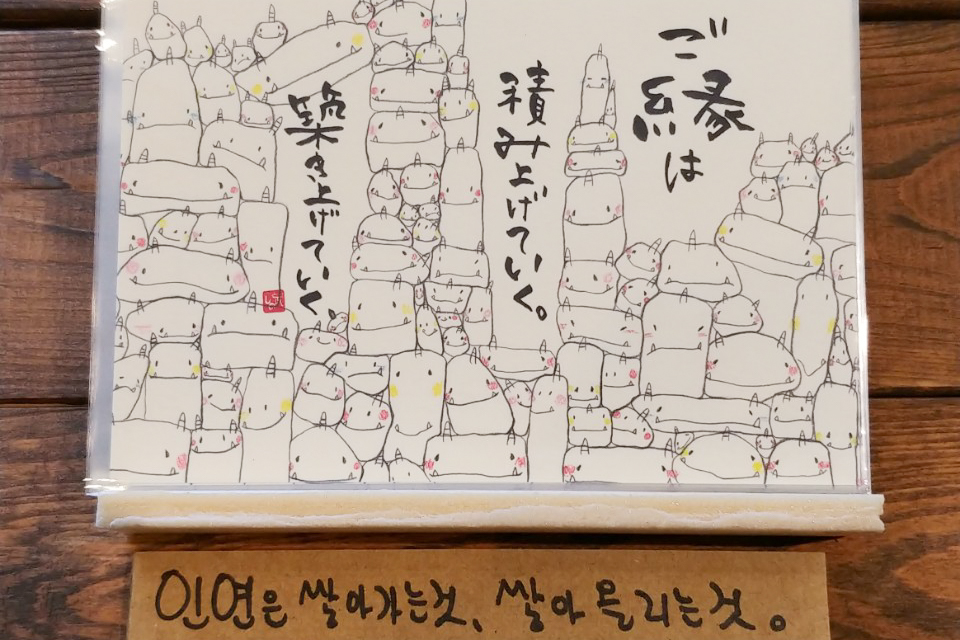 ご縁は
積み上げていく。
築き上げていく
인연은 쌀아가는것、쌀아 올리는것。